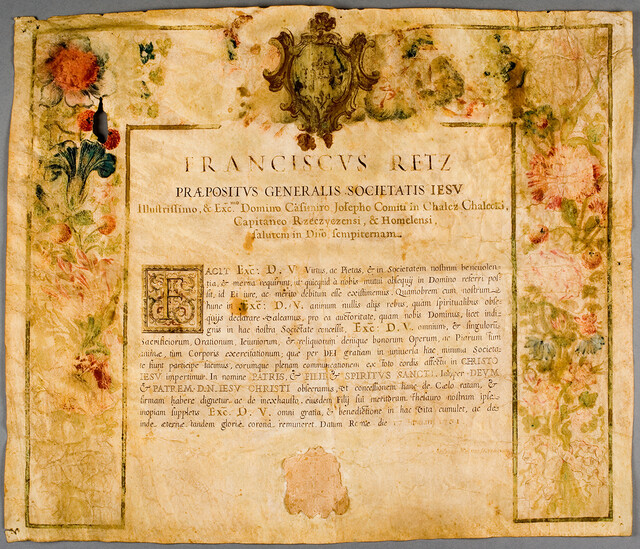 FRANCISCVS RETZ
PRÆPOSITVS GENERALIS SOCIETATIS IESV
Illustrissimo, & Exc.mo Domino Casimiro Josepho Comiti in Chalez Chalecki,
Capitaneo Rzeczycensi, & Homelensi,
salutem in Dño sempiternam.
FACIT Exc: D. V Virtus, ac Pietas, & in Societatem nostram benevolen-
tia, & merita requirunt, ut quicquid a nobis mutui obsequij in Domino referri pos-
sit, id Ei iure, ac merito debitum esse existimemus. Quamobrem cum nostrum
hunc in Exc: D. V. animum nullis alijs rebus, quam spiritualibus obse-
quijs declarare valeamus, pro ea auctoritate, quam nobis Dominus, licet indi-
gnis in hac nostra Societate concessit, Exc: D. V. omnium, & singulorum
Sacrificiorum, Orationum, Ieiuniorum, & reliquorum denique bonorum Operum, ac Piarum tum
animæ, tum Corporis exercitationum, quæ per DEI gratiam in universa hac minima Societa-
te fiunt participem facimus, eorumque plenam communicationem ex toto cordis affectu in CHRISTO
IESV impertimur. In nomine PATRIS, & FILII, & SPIRITVS SANCTI. Insuper DEVM
& PATREM D.N. IESV CHRISTI obsecramus, ut concessionem hanc de Cælo ratam, &
firmam habere dignetur, ac de inexhausto, eiusdem Filij sui meritorum, thesauro nostram ipse
inopiam suppletis Exc: D. V. omni gratia, & benedictione in hac vita cumulet, ac de-
inde æternæ tandem gloriæ coronâ remuneret. Datum Romæ die